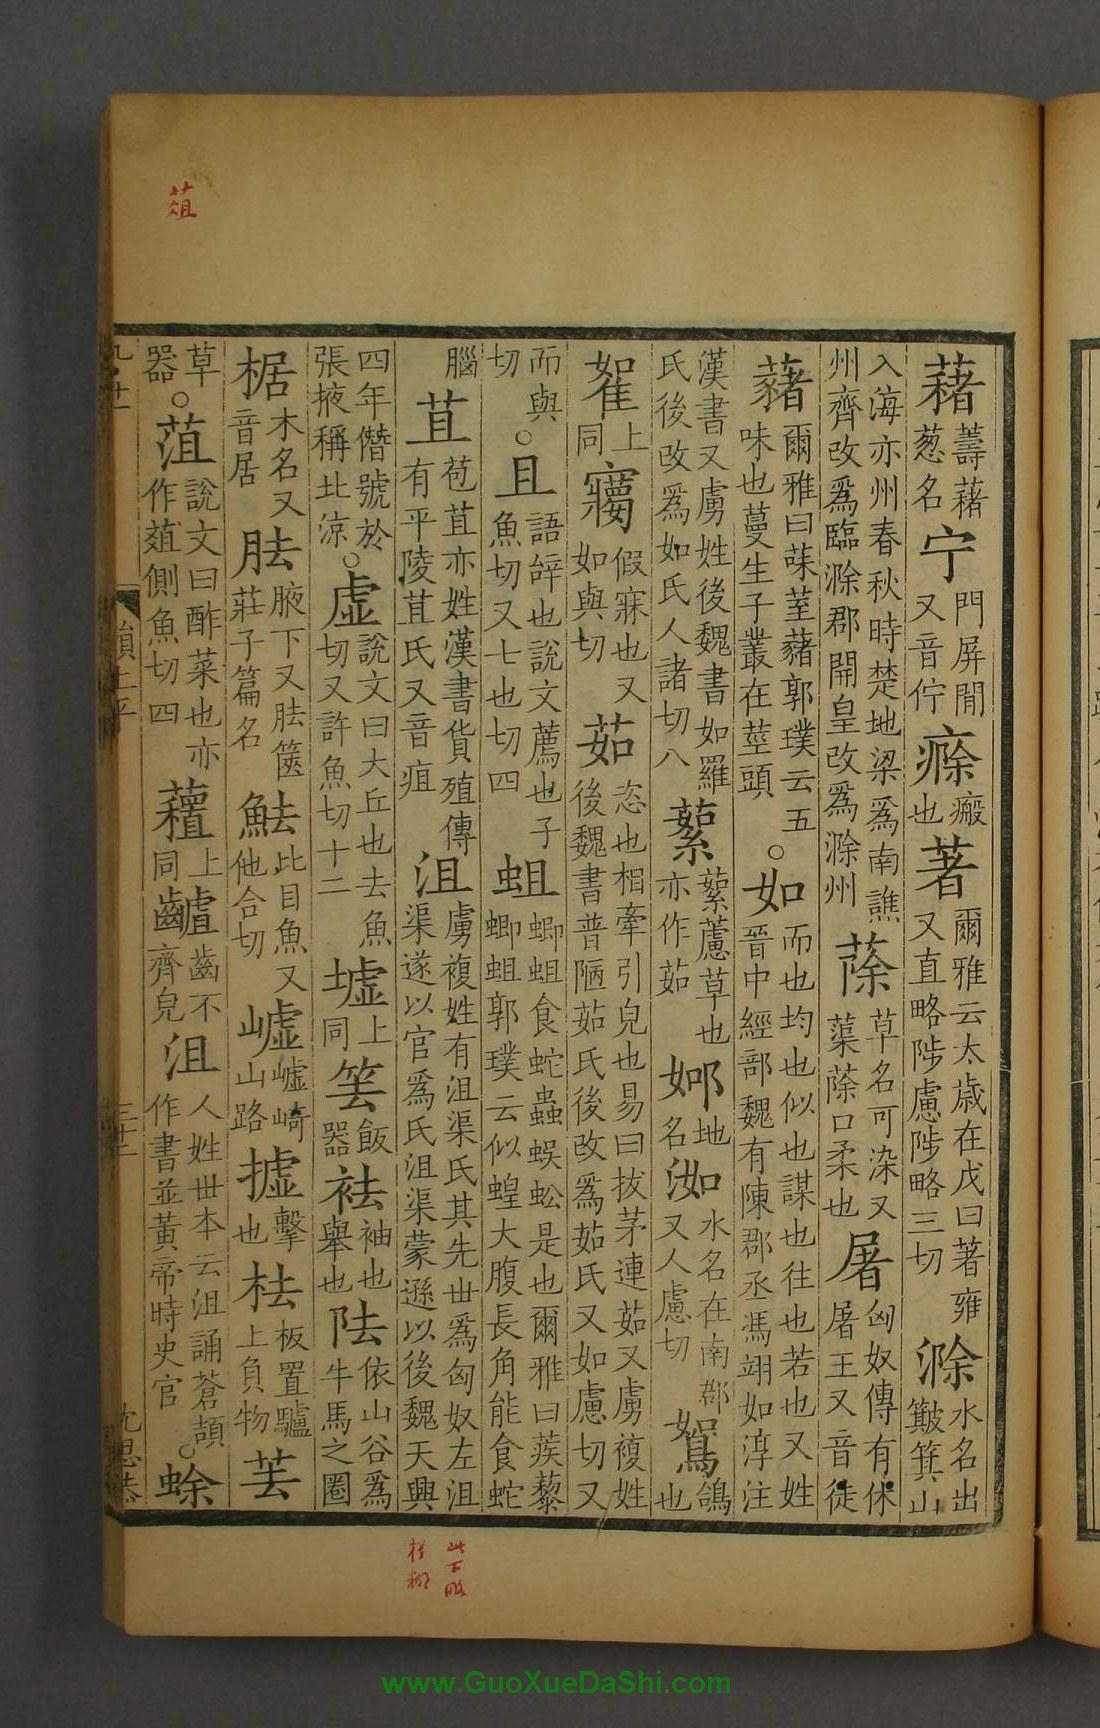 藸蕏藸葱名宁門屏閒又音佇瘵瘢也著爾雅云太歲在戊曰著雍又直略陟慮陟略三切滁水名出皾箕山
入海亦州春秋時楚地梁爲南譙州齊改爲臨滁郡開皇改爲滁州蒢草名可染又蕖蒢口柔也屠匈奴傳有休屠王又音徒
藸爾雅曰菋荎藸郭璞云五味也蔓生子叢在莖頭○如而也均也似也謀也往也若也又姓晉中經部魏有陳郡丞馮翊如淳注
漢書又虜姓後魏書如羅氏後改爲如氏人諸切八蕠蕠藘草也亦作茹邚地名洳水名在南郡又人慮切鴽鴿也
䳡上同㝱假寐也又如與切茹恣也相牽引皃也易曰拔茅連茹又虜複姓後魏書普陋茹氏後改爲茹氏又如慮切又
而與切○且語辝也說文薦也子魚切又七也切四蛆蝍蛆食蛇蟲蜈蚣是也爾雅曰蒺蔾蝍蛆郭璞云似蝗大腹長角能食蛇
腦苴苞苴亦姓漢書貨殖傳有平陵苴氏又音疽沮虜複姓有沮渠氏其先世爲匈奴左沮渠遂以官爲氏沮渠蒙遜以後魏天興
四年僭號於張掖稱北涼○虛說文曰大丘也去魚切又許魚切十二墟上同筶飯器袪袖也舉也阹依山谷爲牛馬之圈
椐木名又音居胠腋下又胠篋莊子篇名魼比目魚又他合切嶇嶇崎山路摣擊也㭕板置驢上負物䒧
草器○菹說文曰酢菜也亦作葅側魚切四蒩上同齟齒不齊皃沮人姓世本云沮誦蒼頡作書並黃帝時史官○蜍
韻上平
三十二
沈思恭